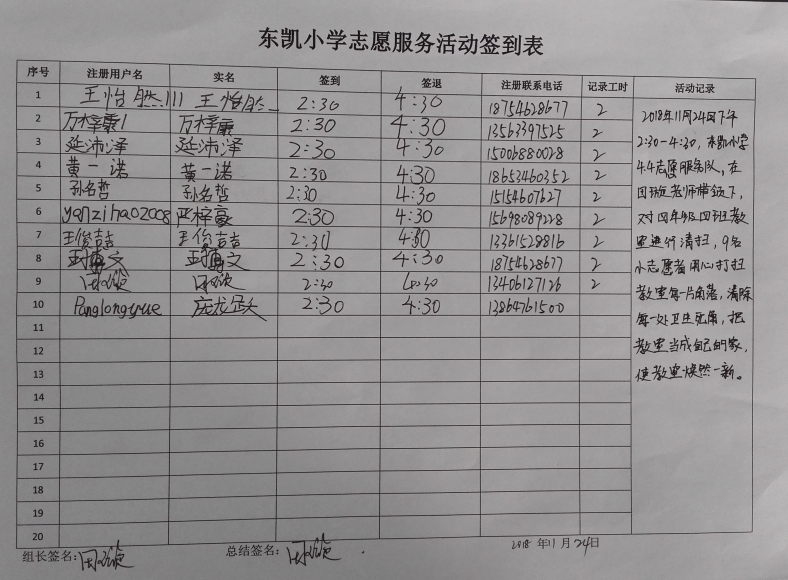 东凯小学志愿服务活动签到表
序号 注册用户名 实名 签到 签退 注册联系电话 记录工时 活动记录
1 王怡然111 王怡然 2:30 4:30 18754628677 2
2 万梓宸1 万梓宸 2:30 4:30 13563397525 2
3 延沛泽 延沛泽 2:30 4:30 15006880028 2
4 黄一诺 黄一诺 2:30 4:30 18653460352 2
5 孙名哲 孙名哲 2:30 4:30 15154607627 2
6 yanzihao2008 严梓豪 2:30 4:30 15698089228 2
7 王俊喆 王俊喆 2:30 4:30 13361528816 2
8 文 文 2:30 4:30 18754628677 2
9 2:30 4:30 13406127126 2
10 Panglongyue 庞龙 2:30 4:30 13864761500
11
12
13
14
15
16
17
18
19
20
2018年11月24日下午
2:30-4:30,东凯小学
4.4志愿服务队,在
老师带领下,
对四年级四班教
室进行清扫,9名
小志愿者用心打扫
教室每一片角落,清除
每一处卫生死角,把
教室当成自己的家,
使教室焕然一新。
组长签名: 总结签名: 2018年11月24日